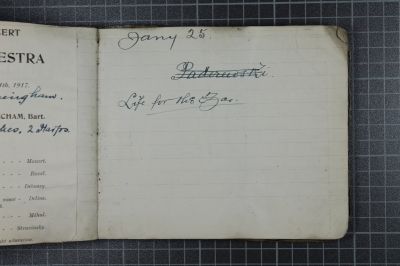 CERT
ESTRA
1th, 1917.
mingham.
CHAM, Bart.
2 Harps.
Mozart.
Ravel.
Debussy.
Delius.
Méhul.
Stravinsky.
Jany 25.
Paderewski.
Life for the Czar.